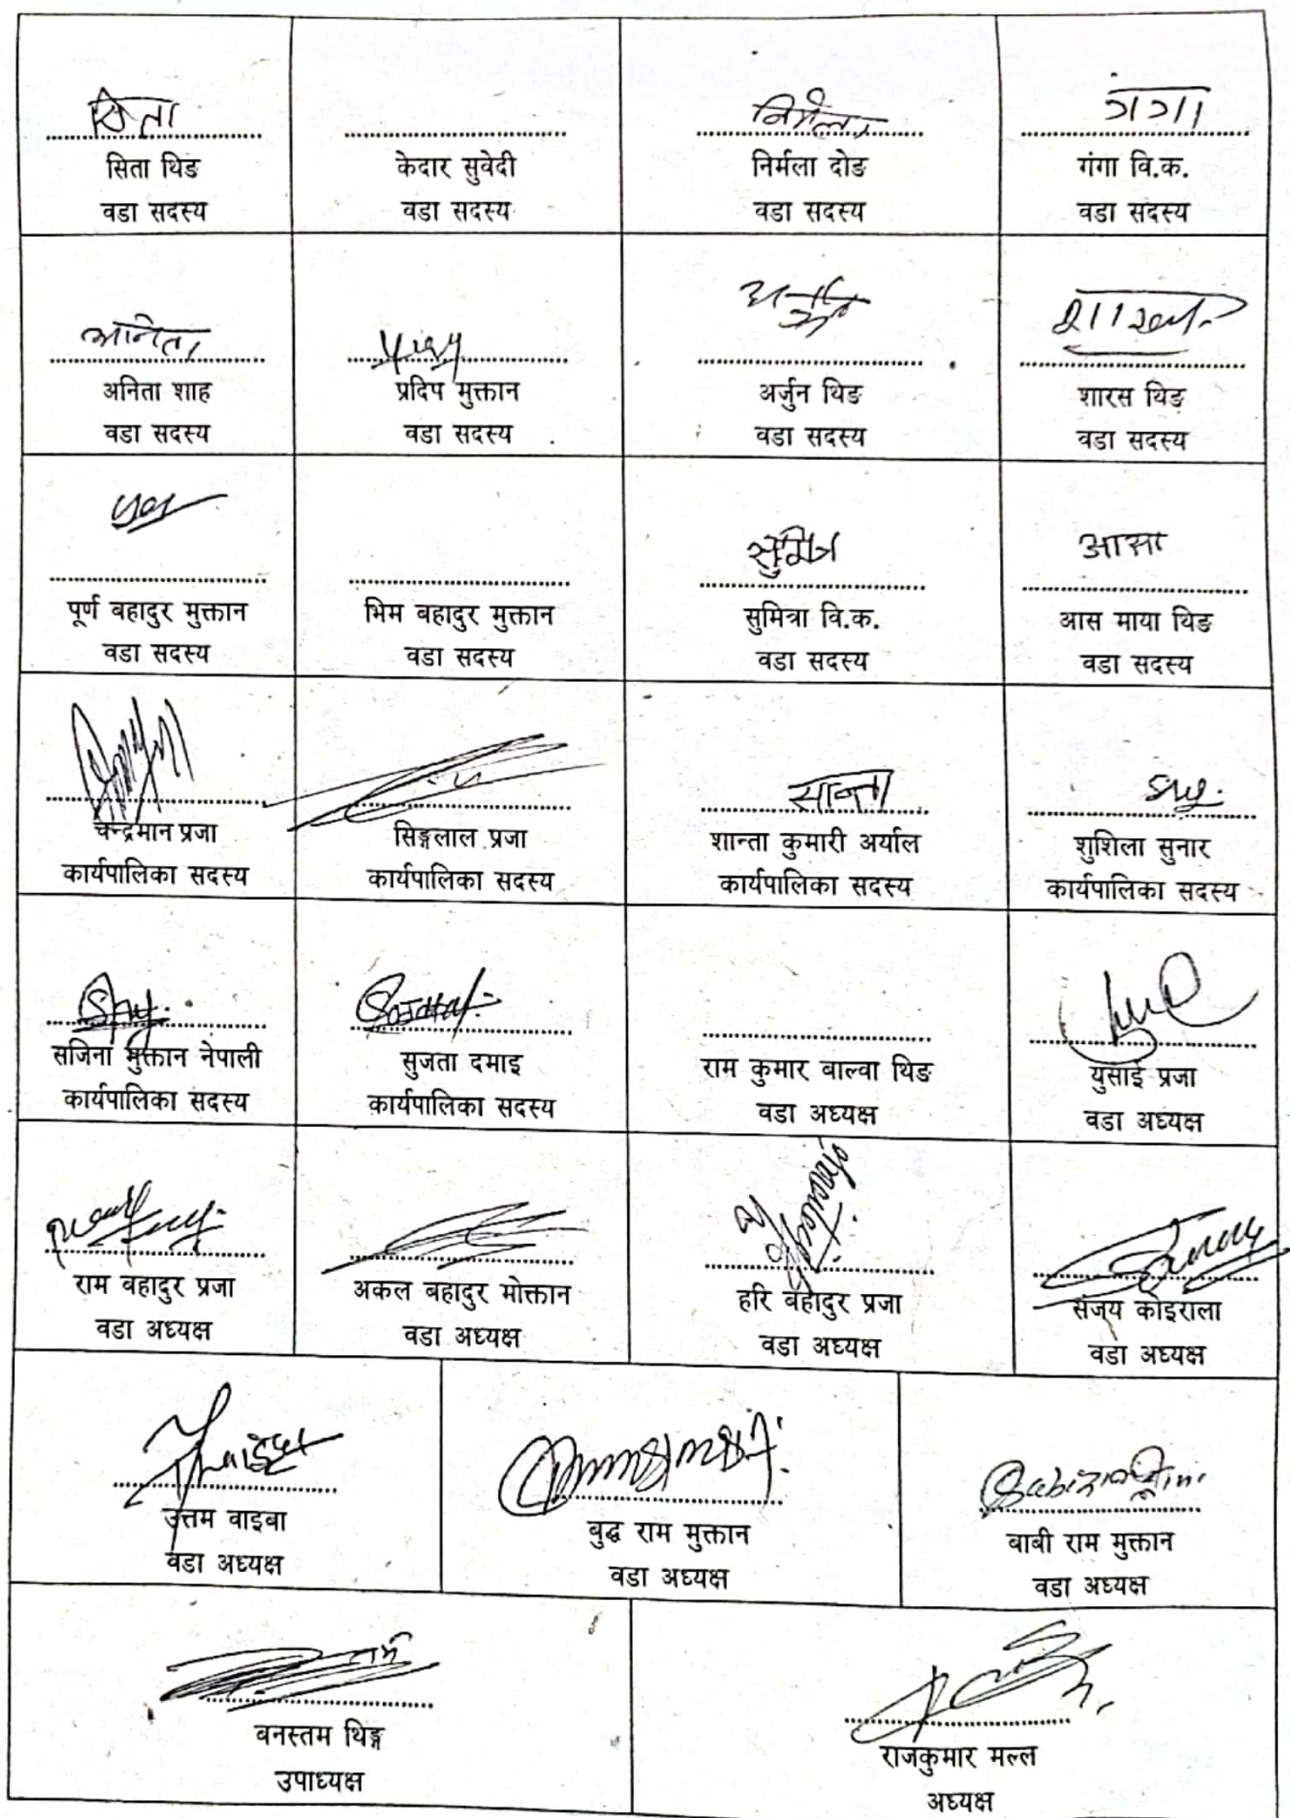 सिता
सिता थिङ
वडा सदस्य
केदार सुवेदी
वडा सदस्य
निर्मला
निर्मला दोङ
वडा सदस्य
गंगा
गंगा वि.क.
वडा सदस्य
अनिता
अनिता शाह
वडा सदस्य
प्रदिप मुक्तान
वडा सदस्य
अर्जुन थिङ
वडा सदस्य
शारस थिङ
वडा सदस्य
पूर्ण बहादुर मुक्तान
वडा सदस्य
भिम बहादुर मुक्तान
वडा सदस्य
सुमित्रा वि.क.
वडा सदस्य
आसा
आस माया थिङ
वडा सदस्य
चन्द्रमान प्रजा
कार्यपालिका सदस्य
सिङ्गलाल प्रजा
कार्यपालिका सदस्य
सान्ता
शान्ता कुमारी अर्याल
कार्यपालिका सदस्य
शुशिला सुनार
कार्यपालिका सदस्य
सजिना मुक्तान नेपाली
कार्यपालिका सदस्य
सुजता दमाइ
कार्यपालिका सदस्य
राम कुमार वाल्वा थिङ
वडा अध्यक्ष
युसाई प्रजा
वडा अध्यक्ष
राम बहादुर प्रजा
वडा अध्यक्ष
अकल बहादुर मोक्तान
वडा अध्यक्ष
हरि बहादुर प्रजा
वडा अध्यक्ष
संजय कोइराला
वडा अध्यक्ष
उत्तम वाइबा
वडा अध्यक्ष
बुद्ध राम मुक्तान
वडा अध्यक्ष
बाबी राम मुक्तान
वडा अध्यक्ष
बनस्तम थिङ्ग
उपाध्यक्ष
राजकुमार मल्ल
अध्यक्ष